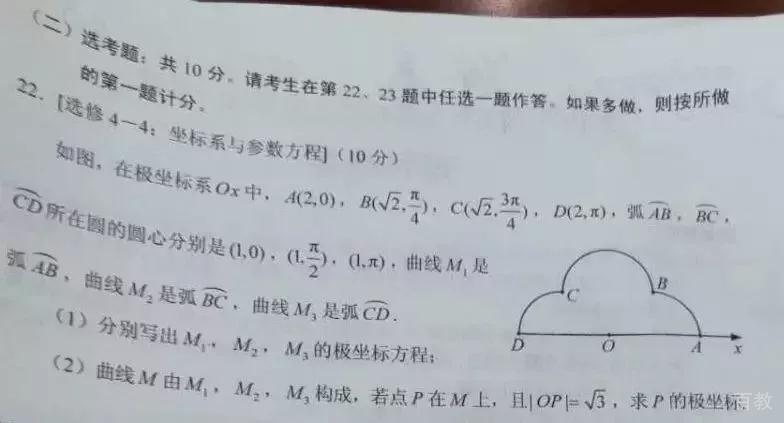 (二)选考题:共10分。请考生在第22、23题中任选一题作答。如果多做,则按所做
的第一题计分。
22.[选修4—4:坐标系与参数方程](10分)
如图,在极坐标系Ox中,A(2,0),B(√2,π/4),C(√2,3π/4),D(2,π),弧AB,BC,
CD所在圆的圆心分别是(1,0),(1,π/2),(1,π),曲线M₁是
弧AB,曲线M₂是弧BC,曲线M₃是弧CD.
(1)分别写出M₁,M₂,M₃的极坐标方程;
(2)曲线M由M₁,M₂,M₃构成,若点P在M上,且|OP|=√3,求P的极坐标.
C
B
D
O
A
x
百教